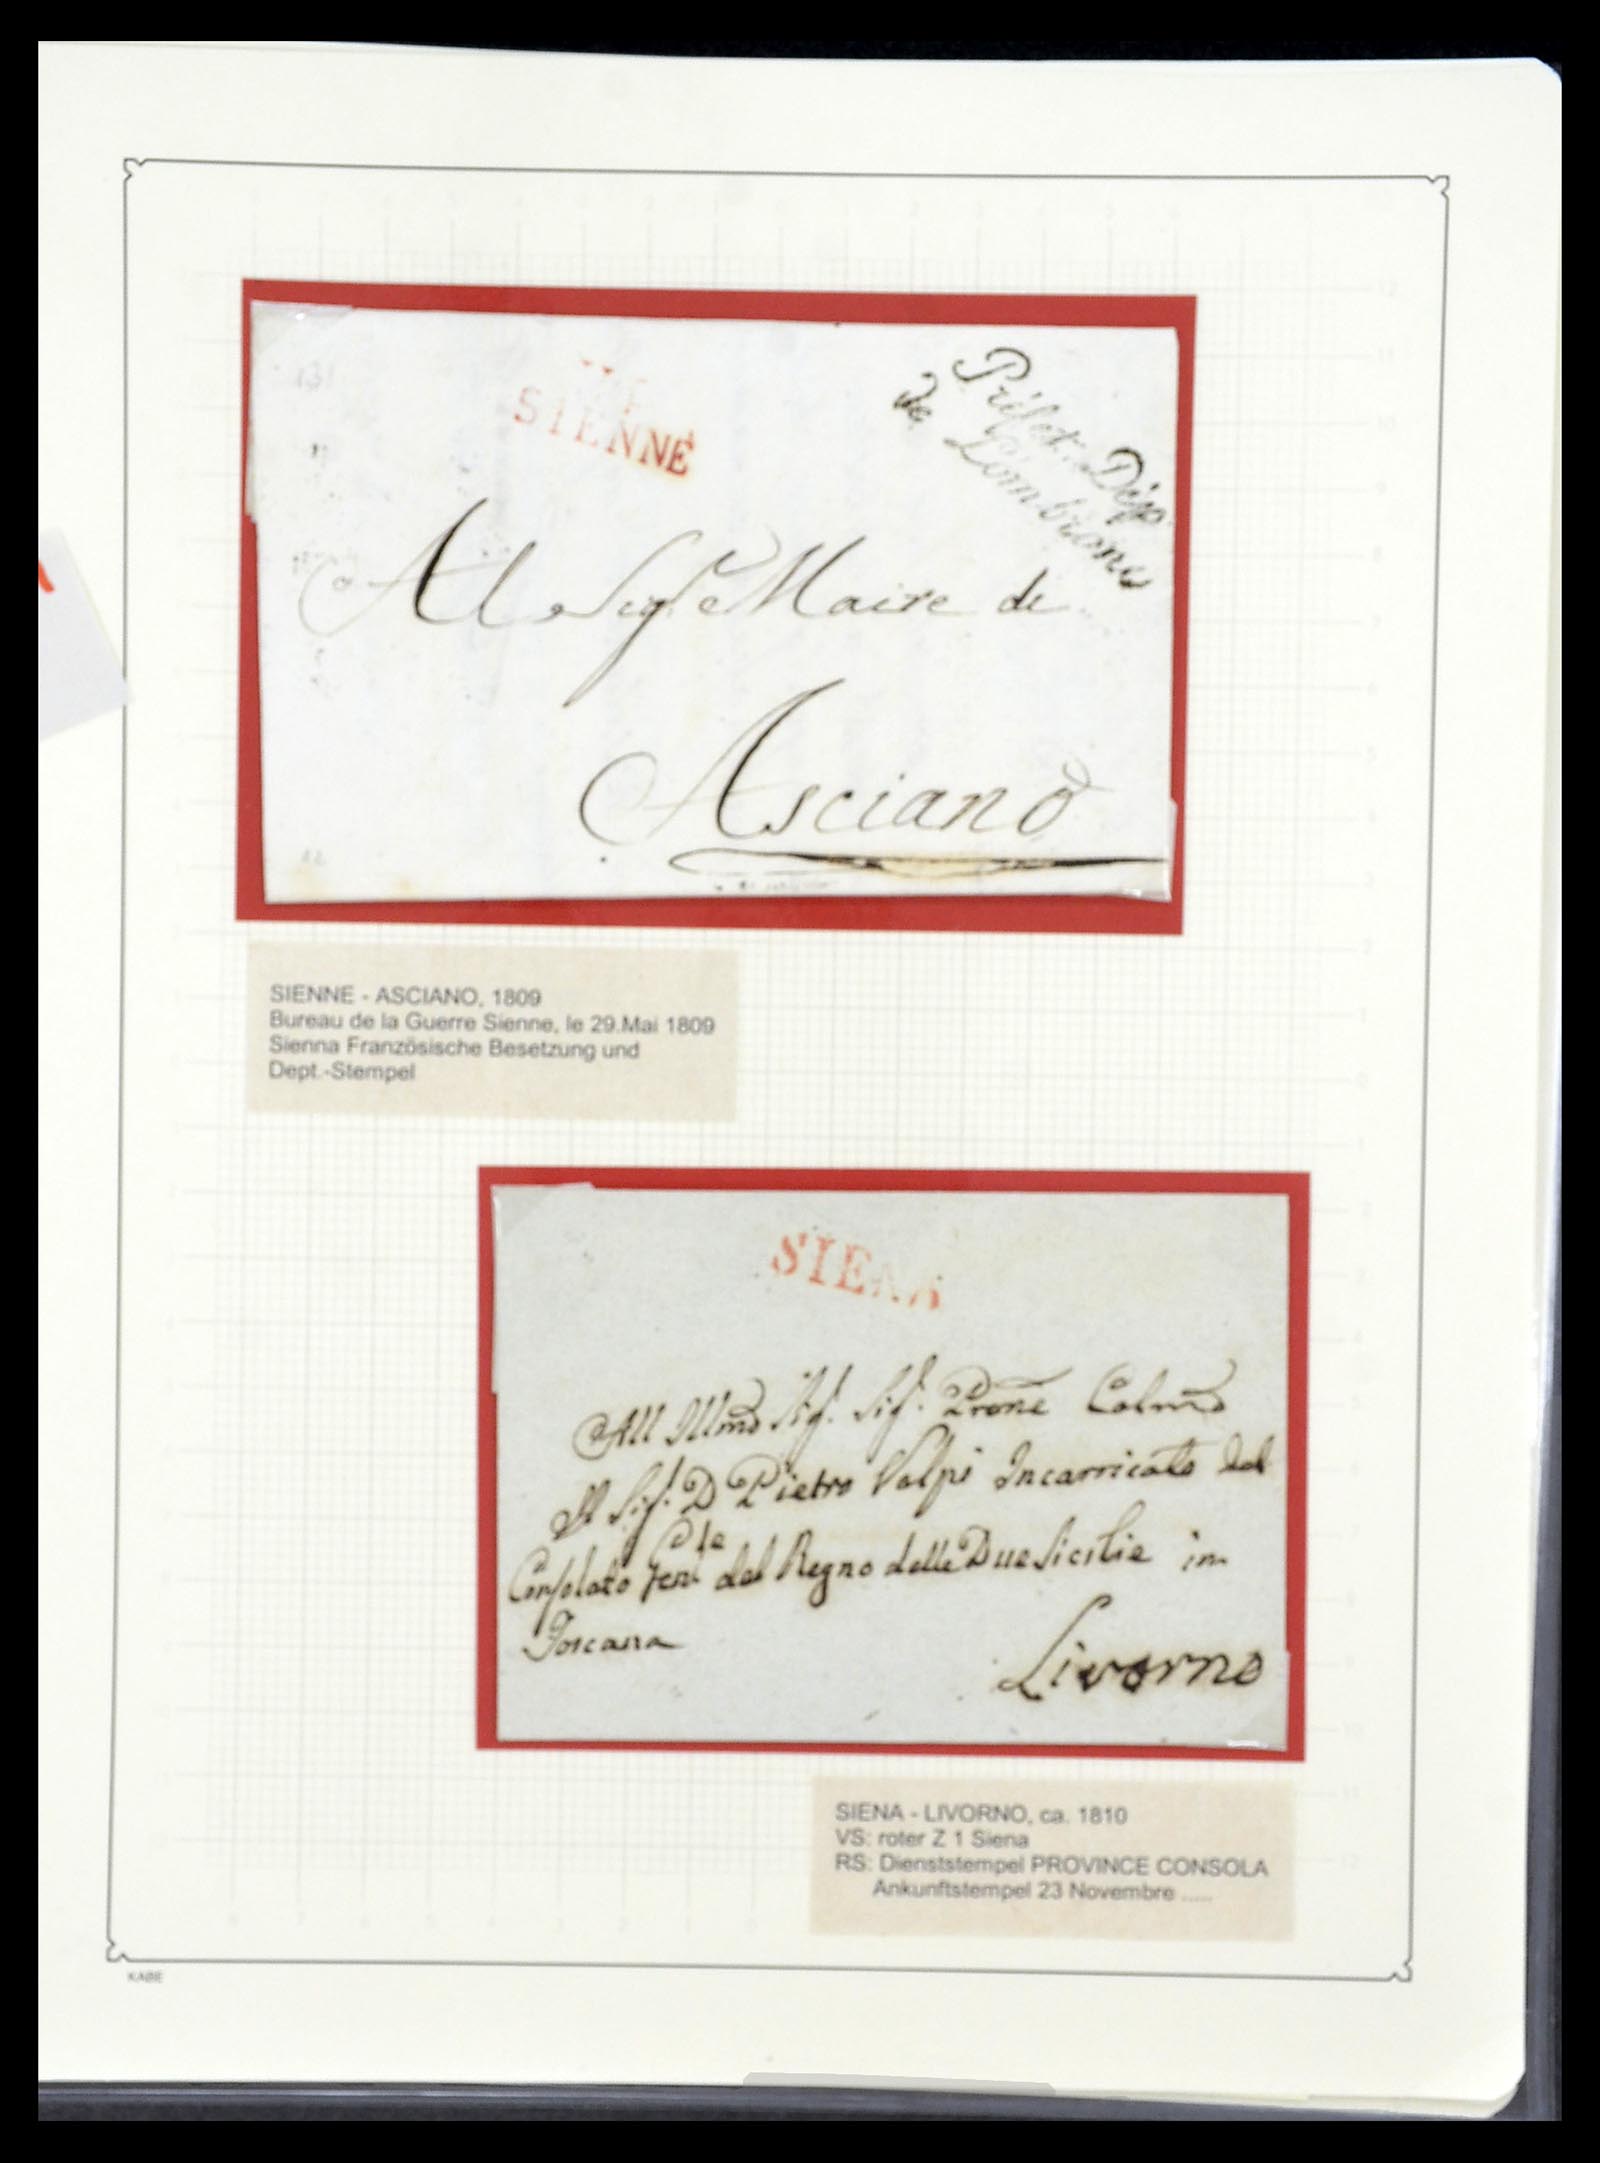 SIENNE
Préfet. Dép.
de L'ombrone
Al Sigr. Maire de
Asciano
SIENNE - ASCIANO, 1809
Bureau de la Guerre Sienne, le 29.Mai 1809
Sienna Französische Besetzung und
Dept.-Stempel
SIENA
All Illmo Sig. Sig. Prone Colmo
Il Sig. D Pietro Volpi Incarricato del
Consolato Genle del Regno delle Due Sicilie in
Toscana
Livorno
SIENA - LIVORNO, ca. 1810
VS: roter Z 1 Siena
RS: Dienststempel PROVINCE CONSOLA
Ankunftstempel 23 Novembre .....
KABE